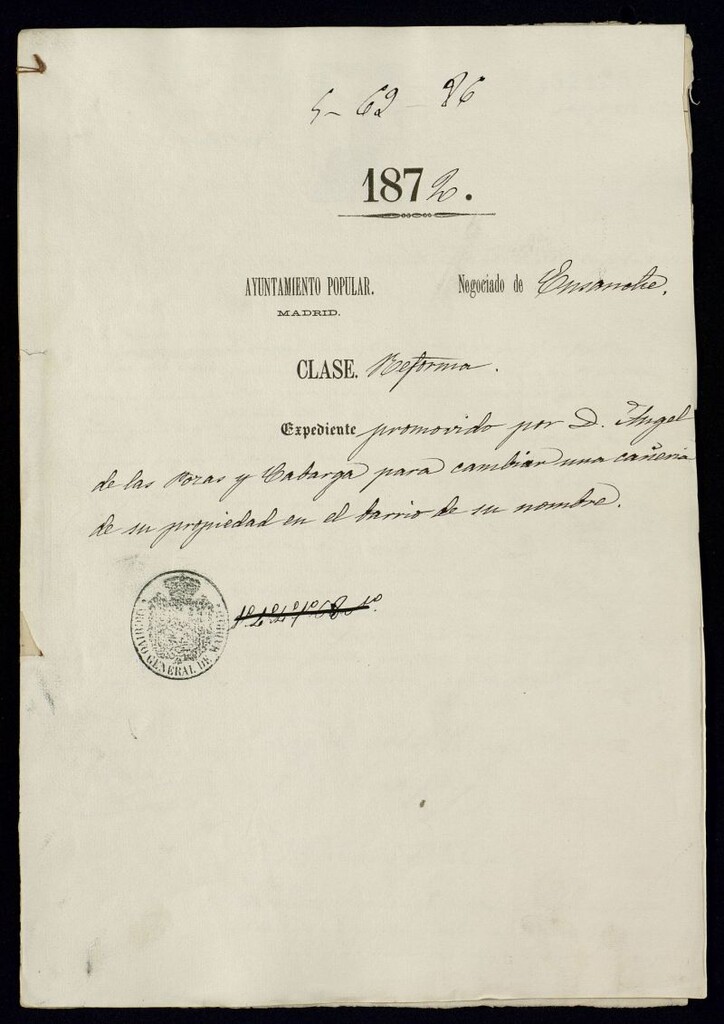 5 - 62 - 86
1872.
AYUNTAMIENTO POPULAR. Negociado de Ensanche.
MADRID.
CLASE. Reforma.
Expediente promovido por D. Angel
de las Pozas y Cabarga para cambiar una cañeria
de su propiedad en el barrio de su nombre.
ARCHIVO GENERAL DE MADRID